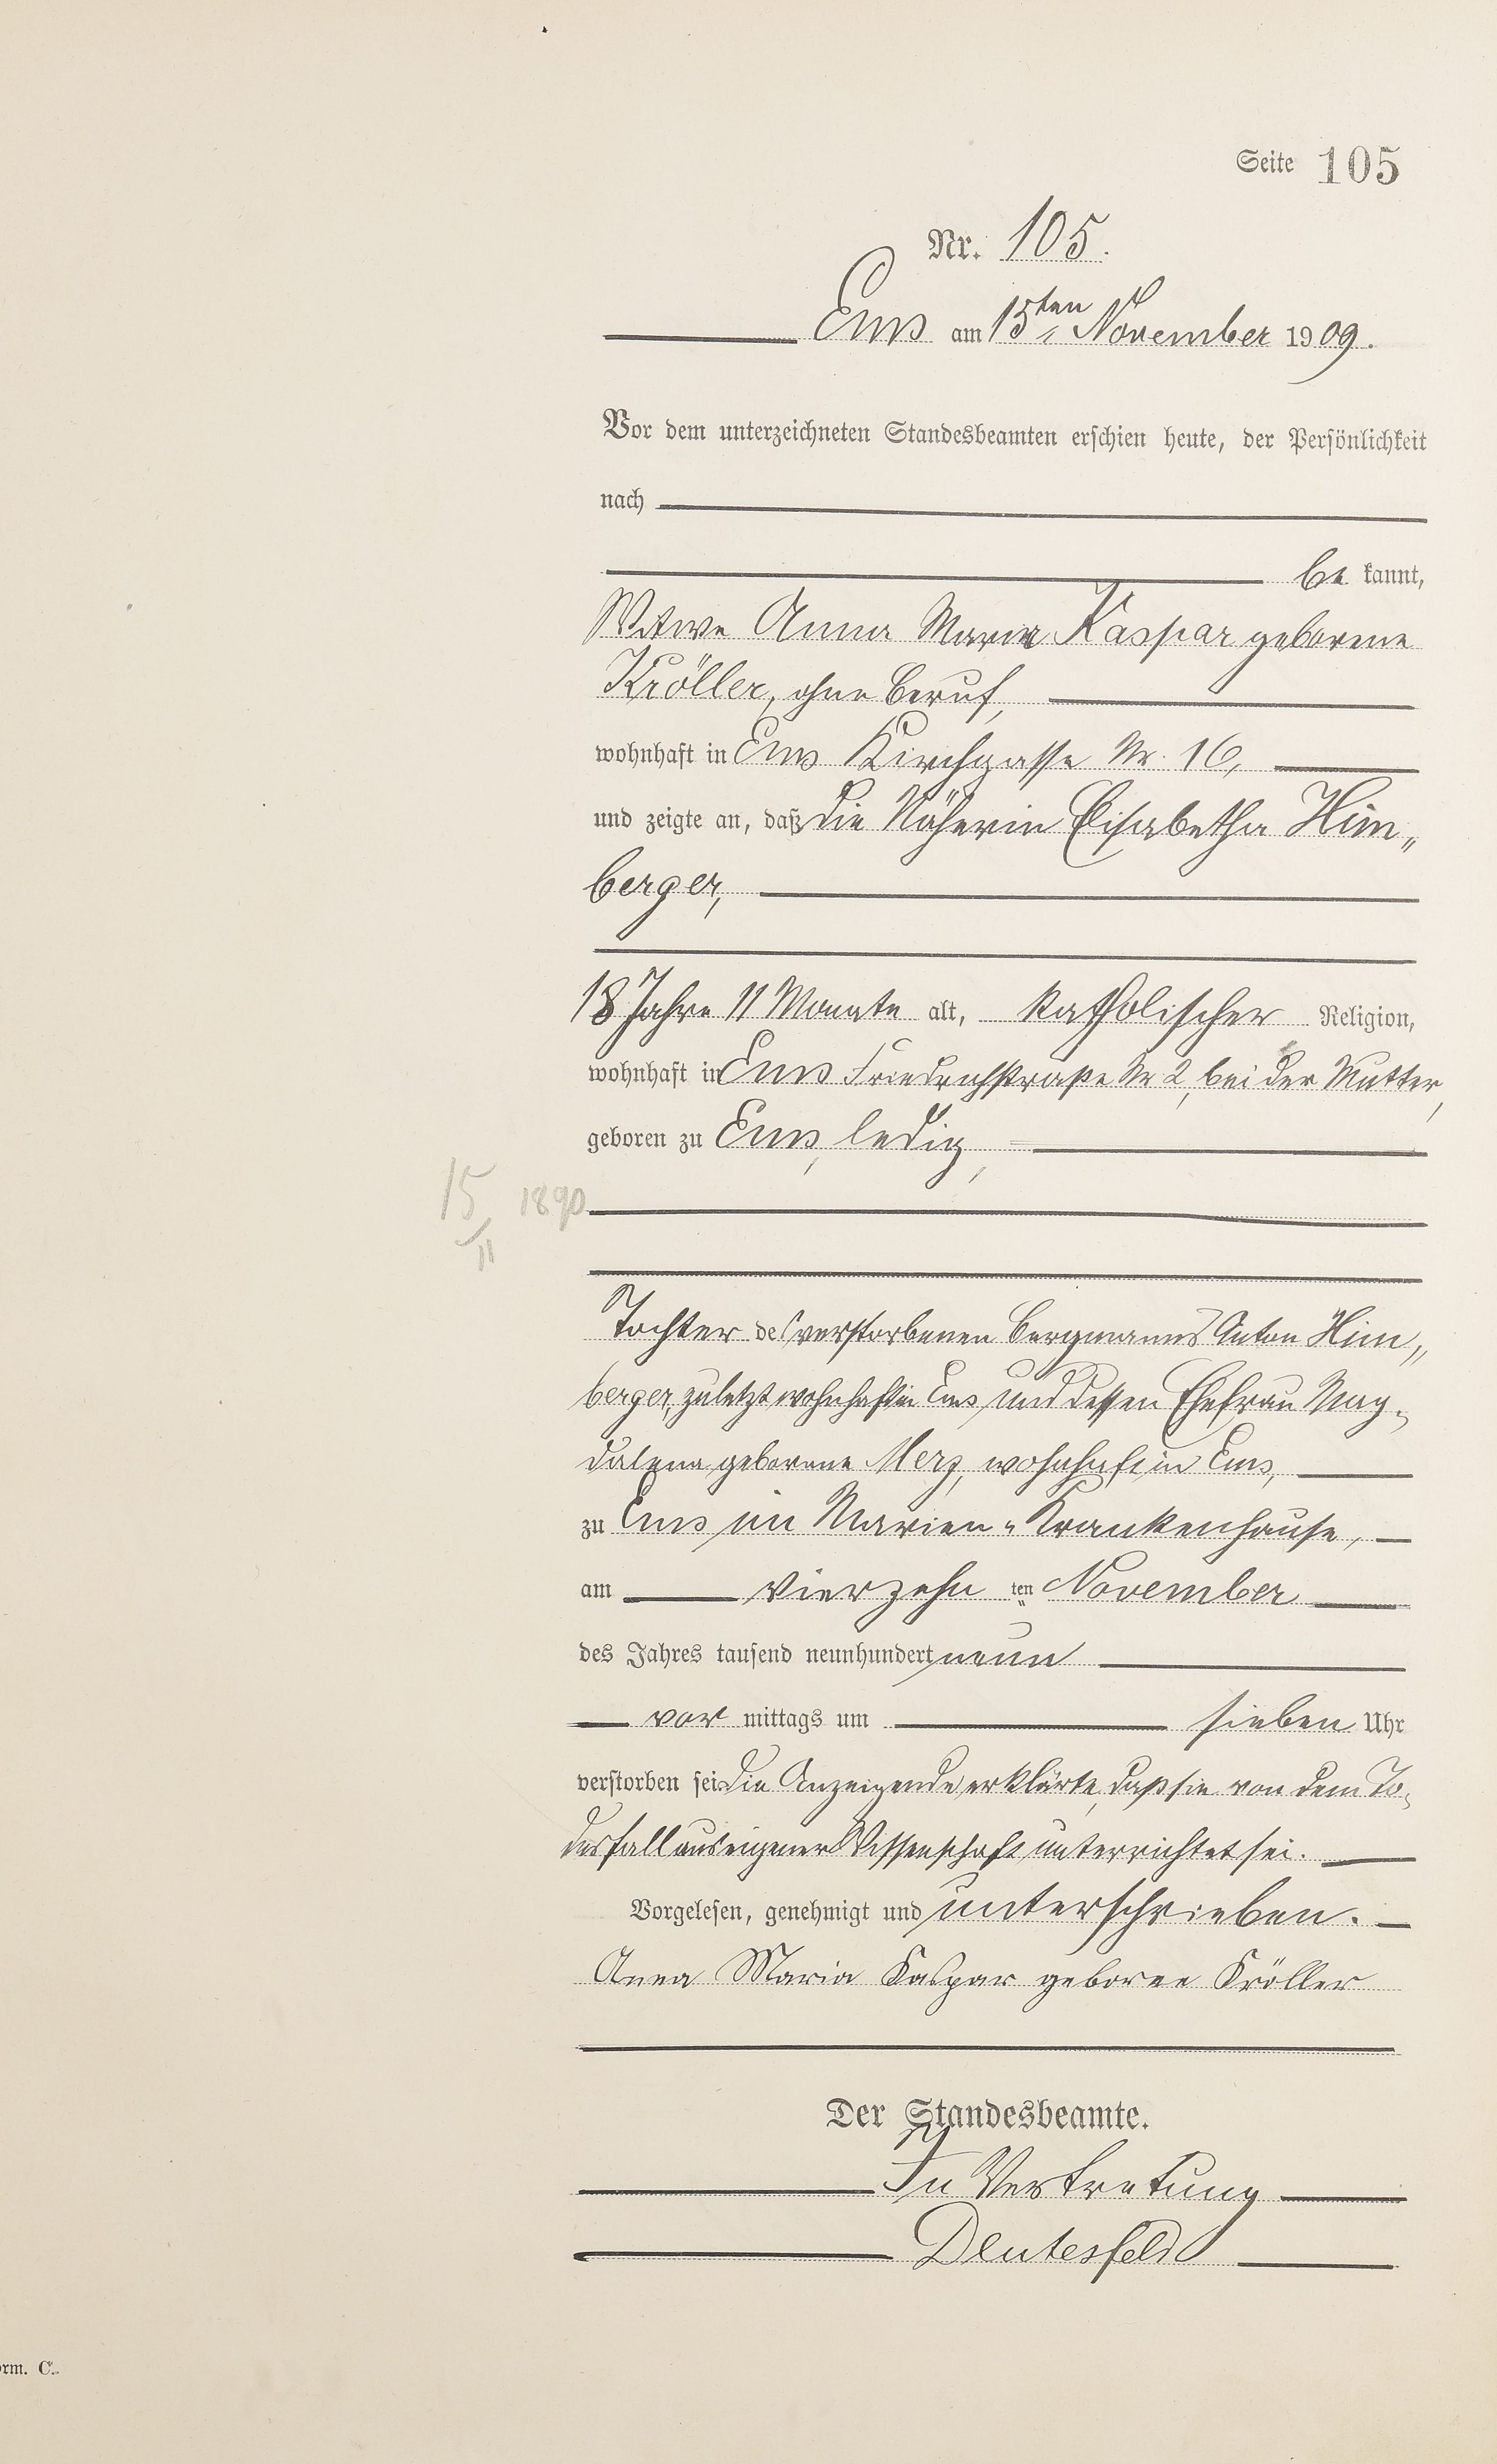 Seite 105
Nr. 105.
Ems am 15ten November 1909.
Vor dem unterzeichneten Standesbeamten erschien heute, der Persönlichkeit
nach
be kannt,
Witwe Anna Maria Kaspar geborene
Kröller, ohne Beruf,
wohnhaft in Ems Kirchgasse Nr. 16,
und zeigte an, daß die Näherin Elisabetha Him„
berger,
18 Jahre 11 Monate alt, katholischer Religion,
wohnhaft in Ems Friedrichstraße Nr 2, bei der Mutter,
geboren zu Ems, ledig,
15/11 1890
Tochter des verstorbenen Bergmanns Anton Him„
berger, zuletzt wohnhaft in Ems und dessen Ehefrau Mag„
dalena geborene Merz, wohnhaft in Ems,
zu Ems im Marien-Krankenhause,
am vierzehn ten November
des Jahres tausend neunhundert neun
vor mittags um sieben Uhr
verstorben sei. Die Anzeigende erklärte, daß sie von dem To„
desfall aus eigener Wissenschaft unterrichtet sei.
Vorgelesen, genehmigt und unterschrieben.
Anna Maria Kaspar geborne Kröller
Der Standesbeamte.
In Vertretung
Deutesfeld
orm. C.